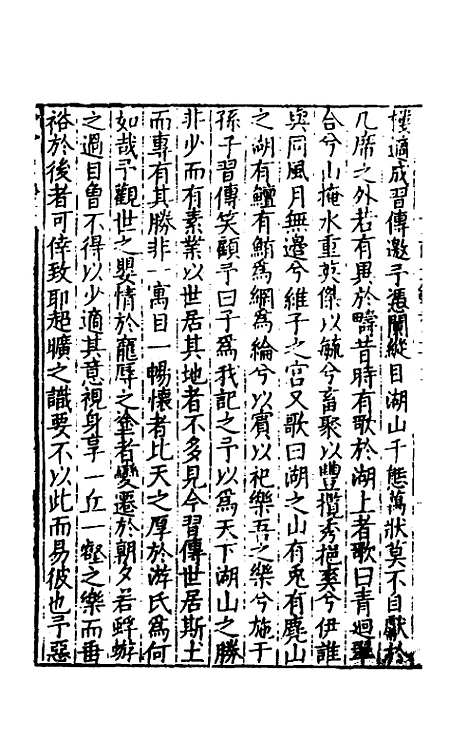 樓適成習傳邀予憑闌縱目湖山千態萬狀莫不自獻於
几席之外若有異於疇昔時有歌於湖上者歌曰青迴翠
合兮山掩水重英傑以毓兮畜聚以豐攬秀挹奏兮伊誰
與同風月無邉兮維子之宫又歌曰湖之山有兎有麂山
之湖有鱣有鮪爲網爲綸兮以賓以祀樂吾之樂兮施于
孫子習傳笑顧予曰子爲我記之予以爲天下湖山之勝
非少而有素業以世居其地者不多見今習傳世居斯土
而專有其勝非一寓目一暢懷者比天之厚於游氏爲何
如哉予觀世之嬰情於寵辱之塗者變遷於朝夕若蜉蝣
之過目曾不得以少適其意視身享一丘一壑之樂而垂
裕於後者可倖致耶起曠之識要不以此而易彼也予惡